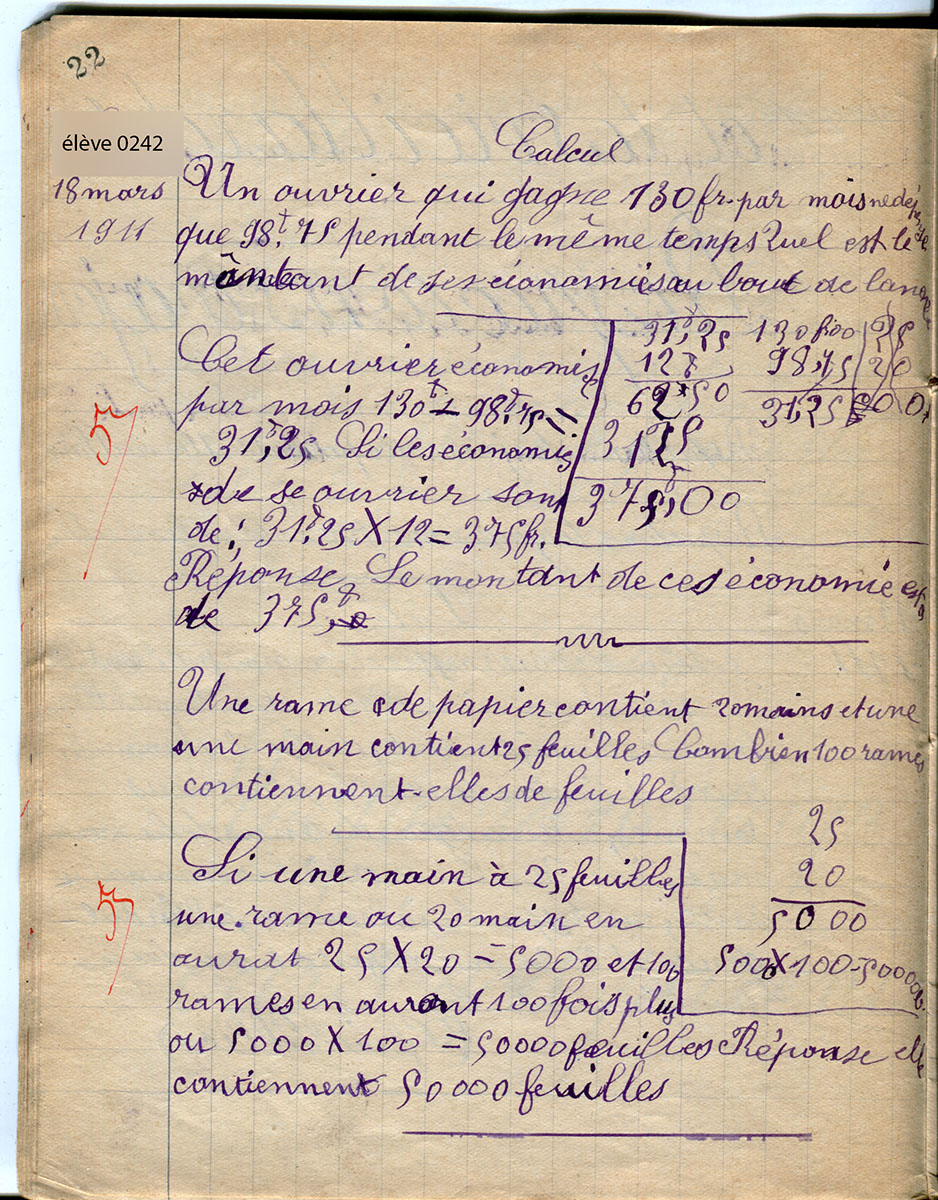 22
élève 0242
Calcul
18 mars
1911
Un ouvrier qui gagne 130 fr. par mois ne dépense
que 98f,75 pendant le même temps Quel est le
montant de ses économies au bout de l'année
31f,25 130 f00 25
12 98,75 20
62 50 31,25 00 0
312 5
375,00
Cet ouvrier économise
par mois 130f - 98f,75 =
31f,25 Si les économies
de se ouvrier sont
de : 31f,25 X 12 = 375 fr.
5
Réponse Le montant de ces économie est
de 375f
Une rame de papier contient 20 mains et une
une main contient 25 feuilles Combien 100 rames
contiennent-elles de feuilles
25
20
5000
500 X 100 = 50000
Si une main à 25 feuilles
une rame ou 20 main en
aurat 25 X 20 = 5000 et 100
rames en auront 100 fois plus
ou 5000 X 100 = 50000 feuilles Réponse elle
contiennent 50000 feuilles
5